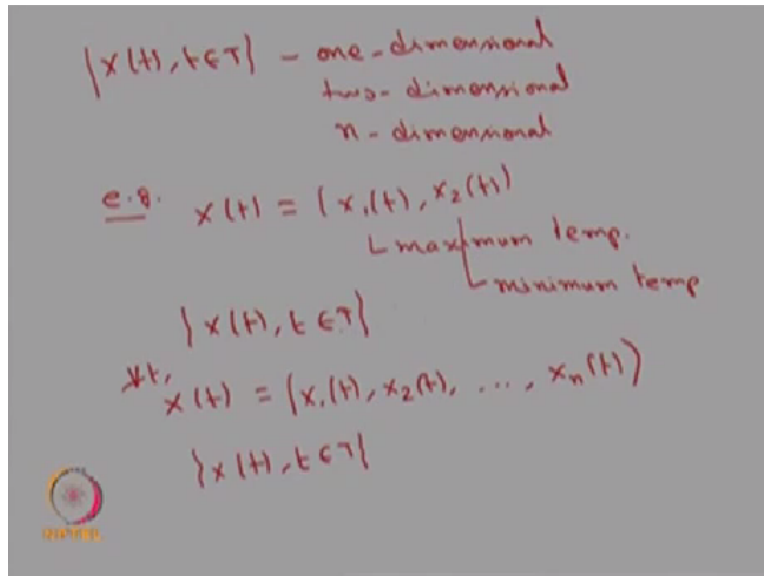 {x(t), t∈T} - one-dimensional
two-dimensional
n-dimensional
e.g. x(t) = (x₁(t), x₂(t))
maximum temp.
minimum temp
{x(t), t∈T}
∀t, x(t) = (x₁(t), x₂(t), ..., xₙ(t))
{x(t), t∈T}
NPTEL